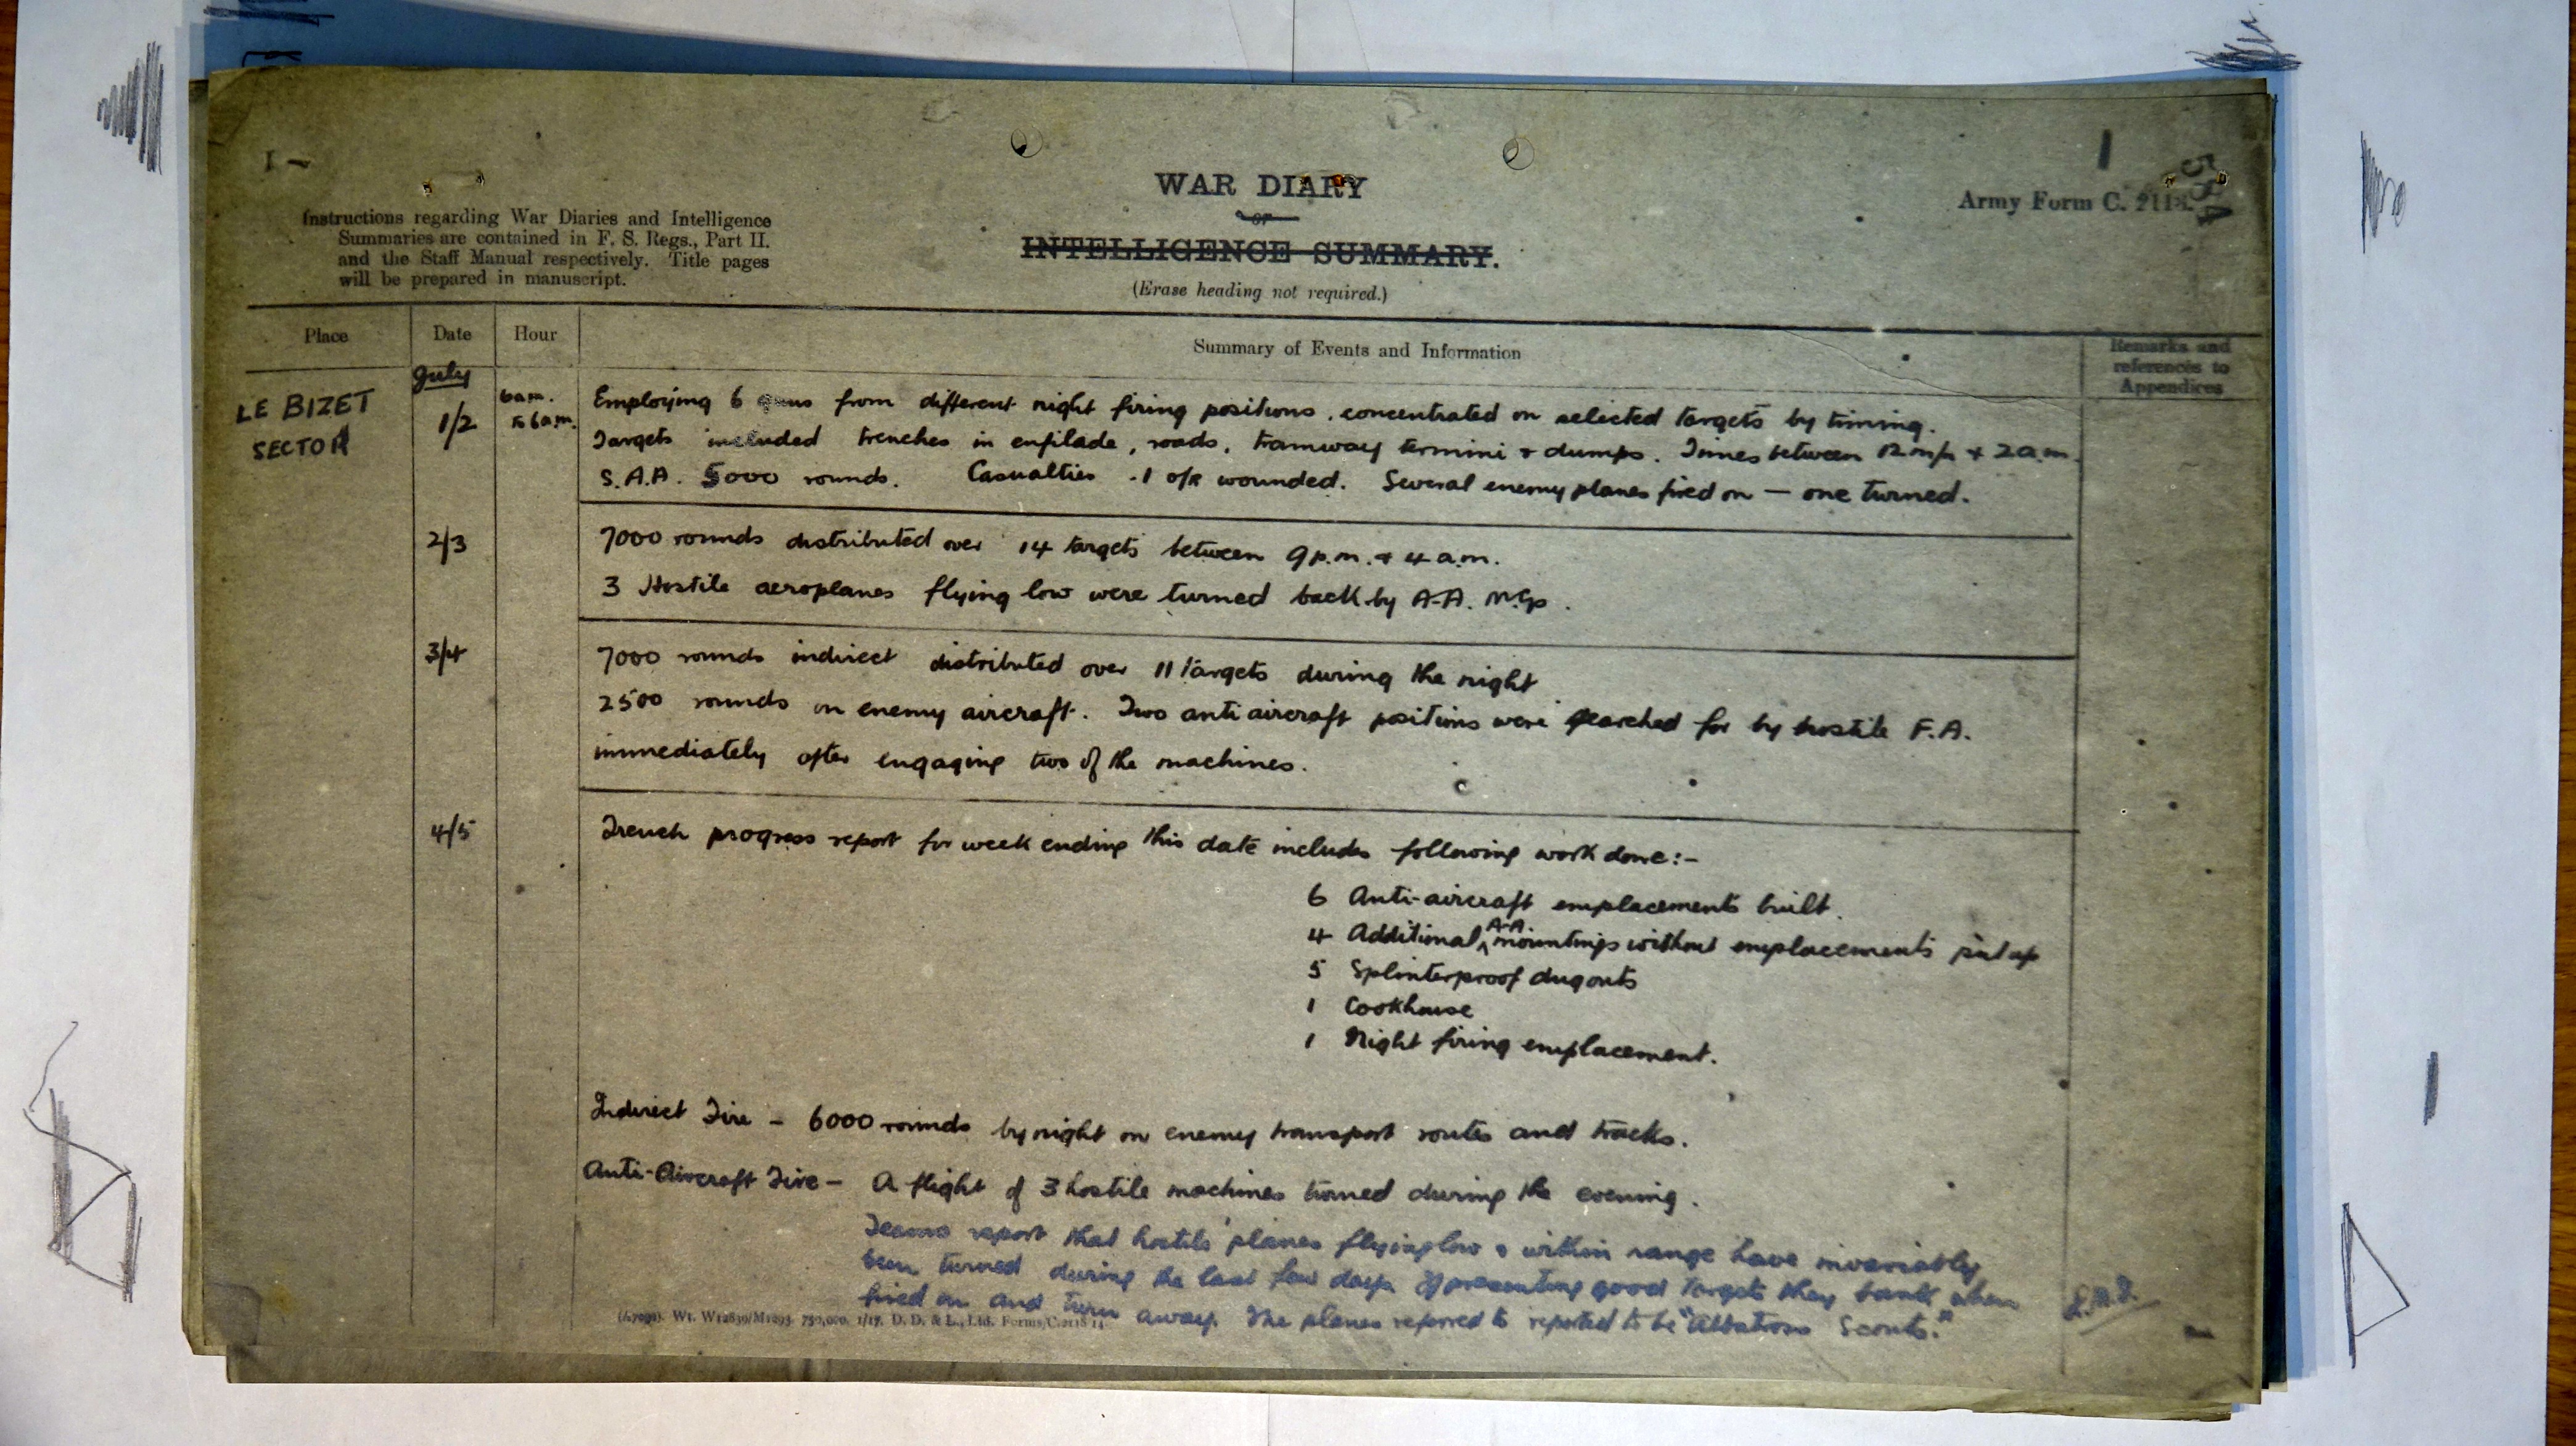 1 -
1
584
WAR DIARY
or
INTELLIGENCE SUMMARY.
(Erase heading not required.)
Army Form C. 2118.
Instructions regarding War Diaries and Intelligence
Summaries are contained in F. S. Regs., Part II.
and the Staff Manual respectively. Title pages
will be prepared in manuscript.
Place Date Hour Summary of Events and Information Remarks and
references to
Appendices
LE BIZET
SECTOR
July
1/2 6am.
to 6a.m. Employing 6 guns from different night firing positions, concentrated on selected targets by timing.
Targets included trenches in enfilade, roads, tramway termini & dumps. Times between 12 m/n & 2 a.m.
S.A.A. 5000 rounds. Casualties . 1 o/r wounded. Several enemy planes fired on — one turned.
2/3 7000 rounds distributed over 14 targets between 9 p.m. & 4 a.m.
3 Hostile aeroplanes flying low were turned back by A-A. M.Gs.
3/4 7000 rounds indirect distributed over 11 targets during the night
2500 rounds on enemy aircraft. Two anti aircraft positions were searched for by hostile F.A.
immediately after engaging two of the machines.
4/5 Trench progress report for week ending this date includes following work done:-
6 Anti-aircraft emplacements built.
4 Additional A-A. mountings without emplacements put up
5 Splinterproof dugouts
1 Cookhouse
1 Night firing emplacement.
Indirect Fire - 6000 rounds by night on enemy transport routes and tracks.
Anti-Aircraft Fire - A flight of 3 hostile machines turned during the evening.
Teams report that hostile planes flying low & within range have invariably
been turned during the last few days. If presenting good targets they bank when
fired on and turn away. The planes referred to reported to be "Albatross Scouts."
Wt. W12839/M1293. 750,000. 1/17. D. D. & L., Ltd. Forms/C.2118/14